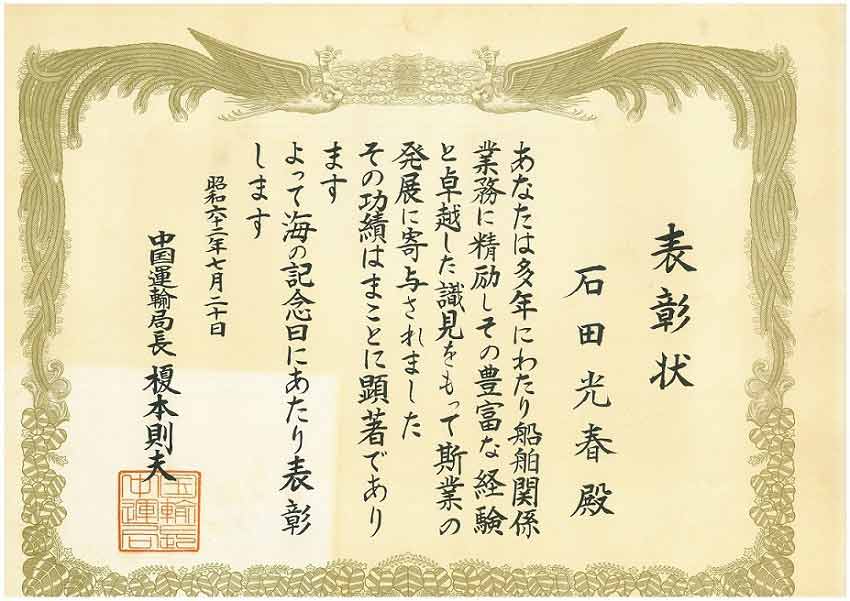 表彰状
石田光春殿
あなたは多年にわたり船舶関係
業務に精励しその豊富な経験
と卓越した識見をもって斯業の
発展に寄与されました
その功績はまことに顕著であり
ます
よって海の記念日にあたり表彰
します
昭和六十二年七月二十日
中国運輸局長 榎本則夫